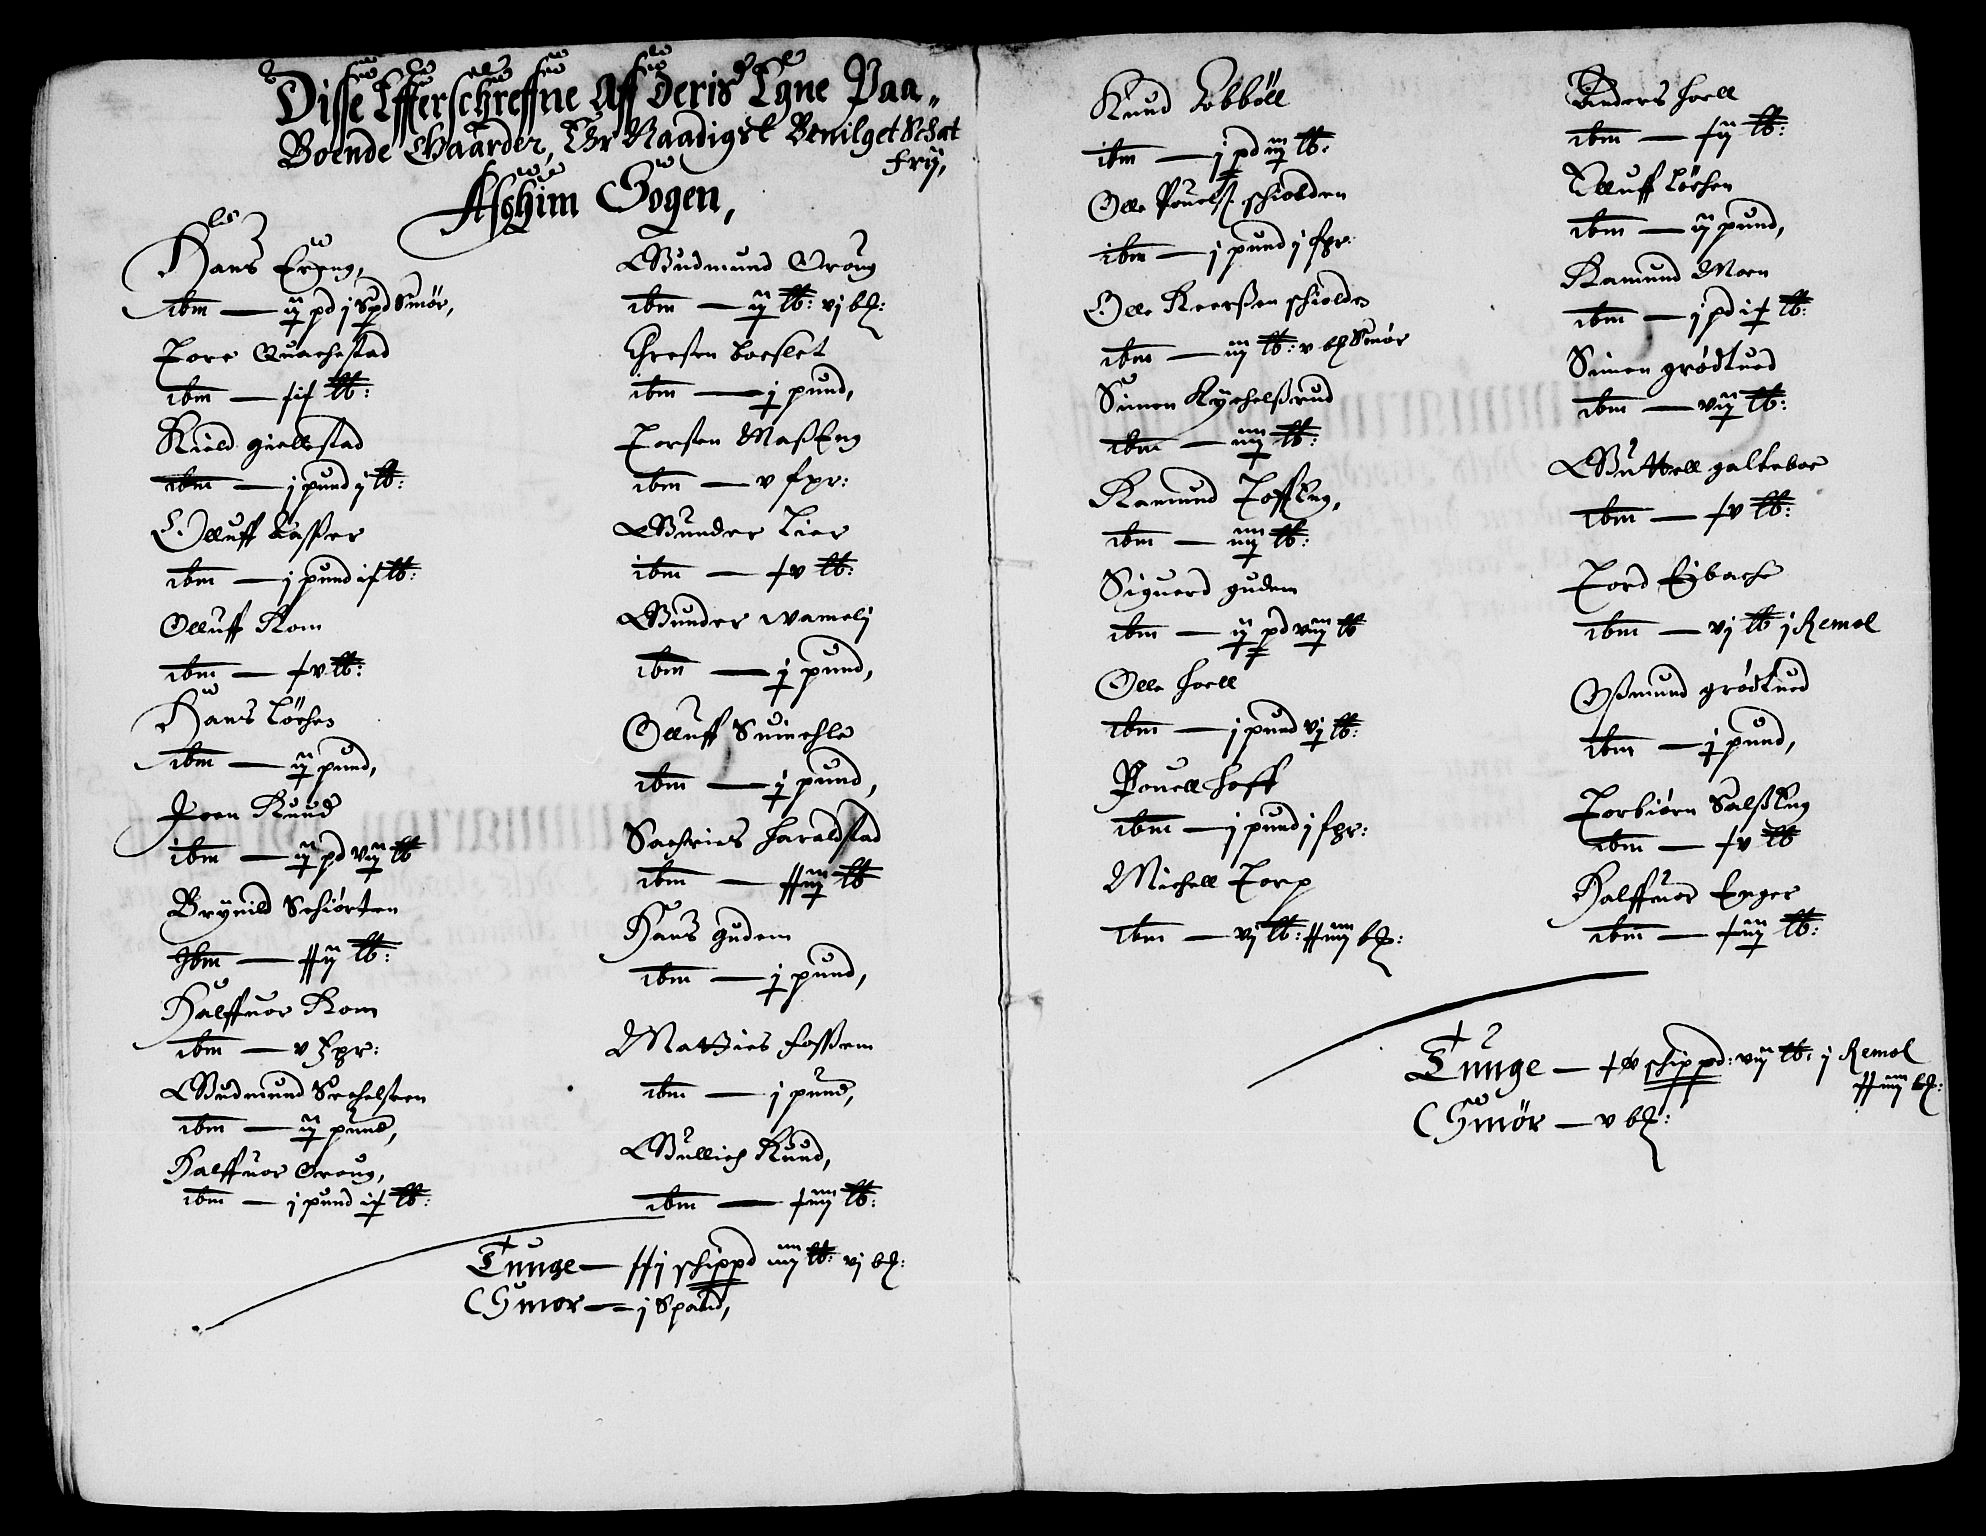 Disse Effterschreffne Aff deris Egne Paa„
Boende Gaarder, Er Naadigst Beuilget Schat
frÿ,
Aschim Sogen,
Hans Ereng,
ibm — ij pd j Spd Smör,
Tore Quachestad
ibm —
Kield giellestad
ibm — j pund j ℔:
Olluff Kasser
ibm — j pund
Olluff Rom
ibm — xv ℔:
Hans Löchen
ibm — iij pund,
Joen Ruud
ibm — iij pd viij ℔
Brynild Schiörten
Ibm — xxij ℔:
Halffuor Rom
ibm — v fpr:
Gudmund Sechelsten
ibm — iij pund,
Halffuor Groug,
ibm — j pund
Gudmund Groug
ibm — iij ℔: vj bℓ:
Chresten boeslet
ibm — j pund,
Torsten MassEng
ibm — v fpr:
Gunder Lier
ibm — xv ℔:
Gunder Vamelj
ibm — j pund,
Olluff Suinehle
ibm — j pund,
Sachries haraldstad
ibm — xxiij ℔
Hans gudem
ibm — j pund,
Matties fossem
ibm — j pund,
Gullich Ruud,
ibm — xiiij ℔:
Tunge — xxj schippd iiij ℔: vj bℓ:
Smör — j Spand,
Knud Lobböll
ibm — j pd iiij ℔:
Olle Pouelß. schiolden
ibm — j pund j fpr:
Olle Roerßen schiolden
ibm — iiij ℔: v bℓ Smör
Simen Kychelßrud
ibm — iiij ℔:
Ramund Toffeng,
ibm — iiij ℔:
Siguord gudem
ibm — ij pd viij ℔
Olle hoell
ibm — j pund vj ℔:
Pouell hoff
ibm — j pund j fpr:
Michell Torp
ibm — vj ℔: xxiiij bℓ:
Anders hoell
ibm — xij ℔:
Olluff Löchen
ibm — ij pund,
Ramund Moen
ibm — j pd
Simen grödtued
ibm — viij ℔:
Guttoll galteboe
ibm — xv ℔:
Tord Eybache
ibm — vj ℔ j Remol
Oßmund grödtued
ibm — j pund,
Torbiörn SalßEng
ibm — xv ℔
Halffuor Enger
ibm — xiij ℔:
Tunge — xv schippd: viij ℔: j Remol
xxiiij bℓ:
Smör — v bℓ: